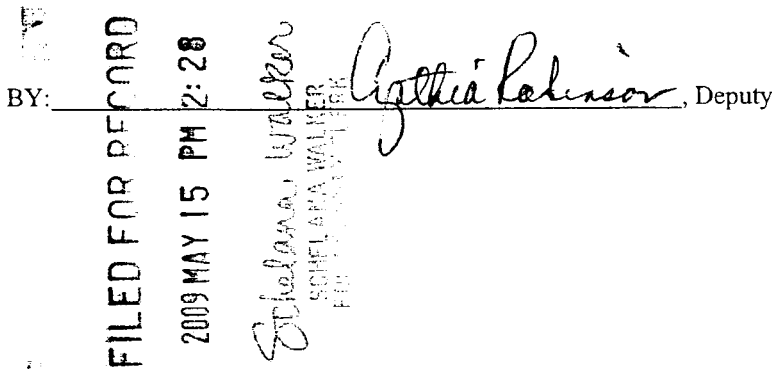 BY: Cynthia Robinson, Deputy
FILED FOR RECORD
2009 MAY 15 PM 2:28
Schelana Walker
SCHELANA WALKER